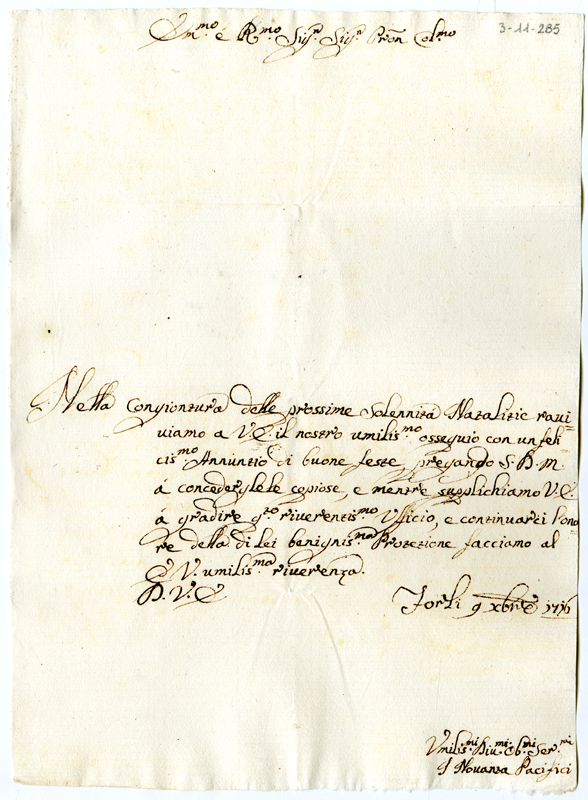 3-11-285
Em.mo e R.mo Sig.r Sig.r Pron Col.mo
Nella Congiontura delle prossime Solennità Natalitie ravi=
viamo a V.E. il nostro umilis.mo ossequio con un feli=
cis.mo Annuntio di buone feste, pregando S.D.M.
à concedergliele copiose, e mentre supplichiamo V.E.
à gradire q.to riverentis.mo Ufficio, e continuarci l'ono=
re della di lei benignis.ma Protetione facciamo al
E.V. umilis.ma riverenza.
D.V.E.
Forlì 9 xbre
Umilis.mi Div.mi Ob.mi Ser.mi
I Novanta Pacifici